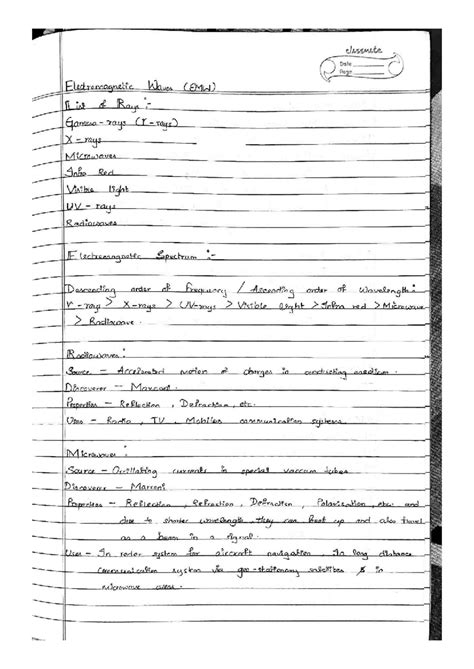 classmate
Date
Page
Electromagnetic Waves (EMW)
List of Rays :-
Gamma-rays (γ-rays)
X-rays
Microwaves
Infra Red
Visible light
UV-rays
Radiowaves
Electromagnetic Spectrum :-
Descending order of frequency / Ascending order of Wavelength :
γ-rays > X-rays > UV-rays > Visible light > Infra red > Microwave
> Radiowave.
Radiowaves :
Source - Accelerated motion of charges in conducting medium.
Discoverer - Marconi.
Properties - Reflection, Defraction, etc.
Uses - Radio, TV, Mobiles communication systems.
Microwaves :
Source - Oscillating currents in special vaccum tubes.
Discoverer - Marconi
Properties - Reflection, Refraction, Defraction, Polarisation, etc. and
due to shorter wavelength they can heat up and also travel
as a beam in a signal.
Uses - In radar system for aircraft navigation, In long distance
communication system via geo-stationary satelites & in
microwave ovens.